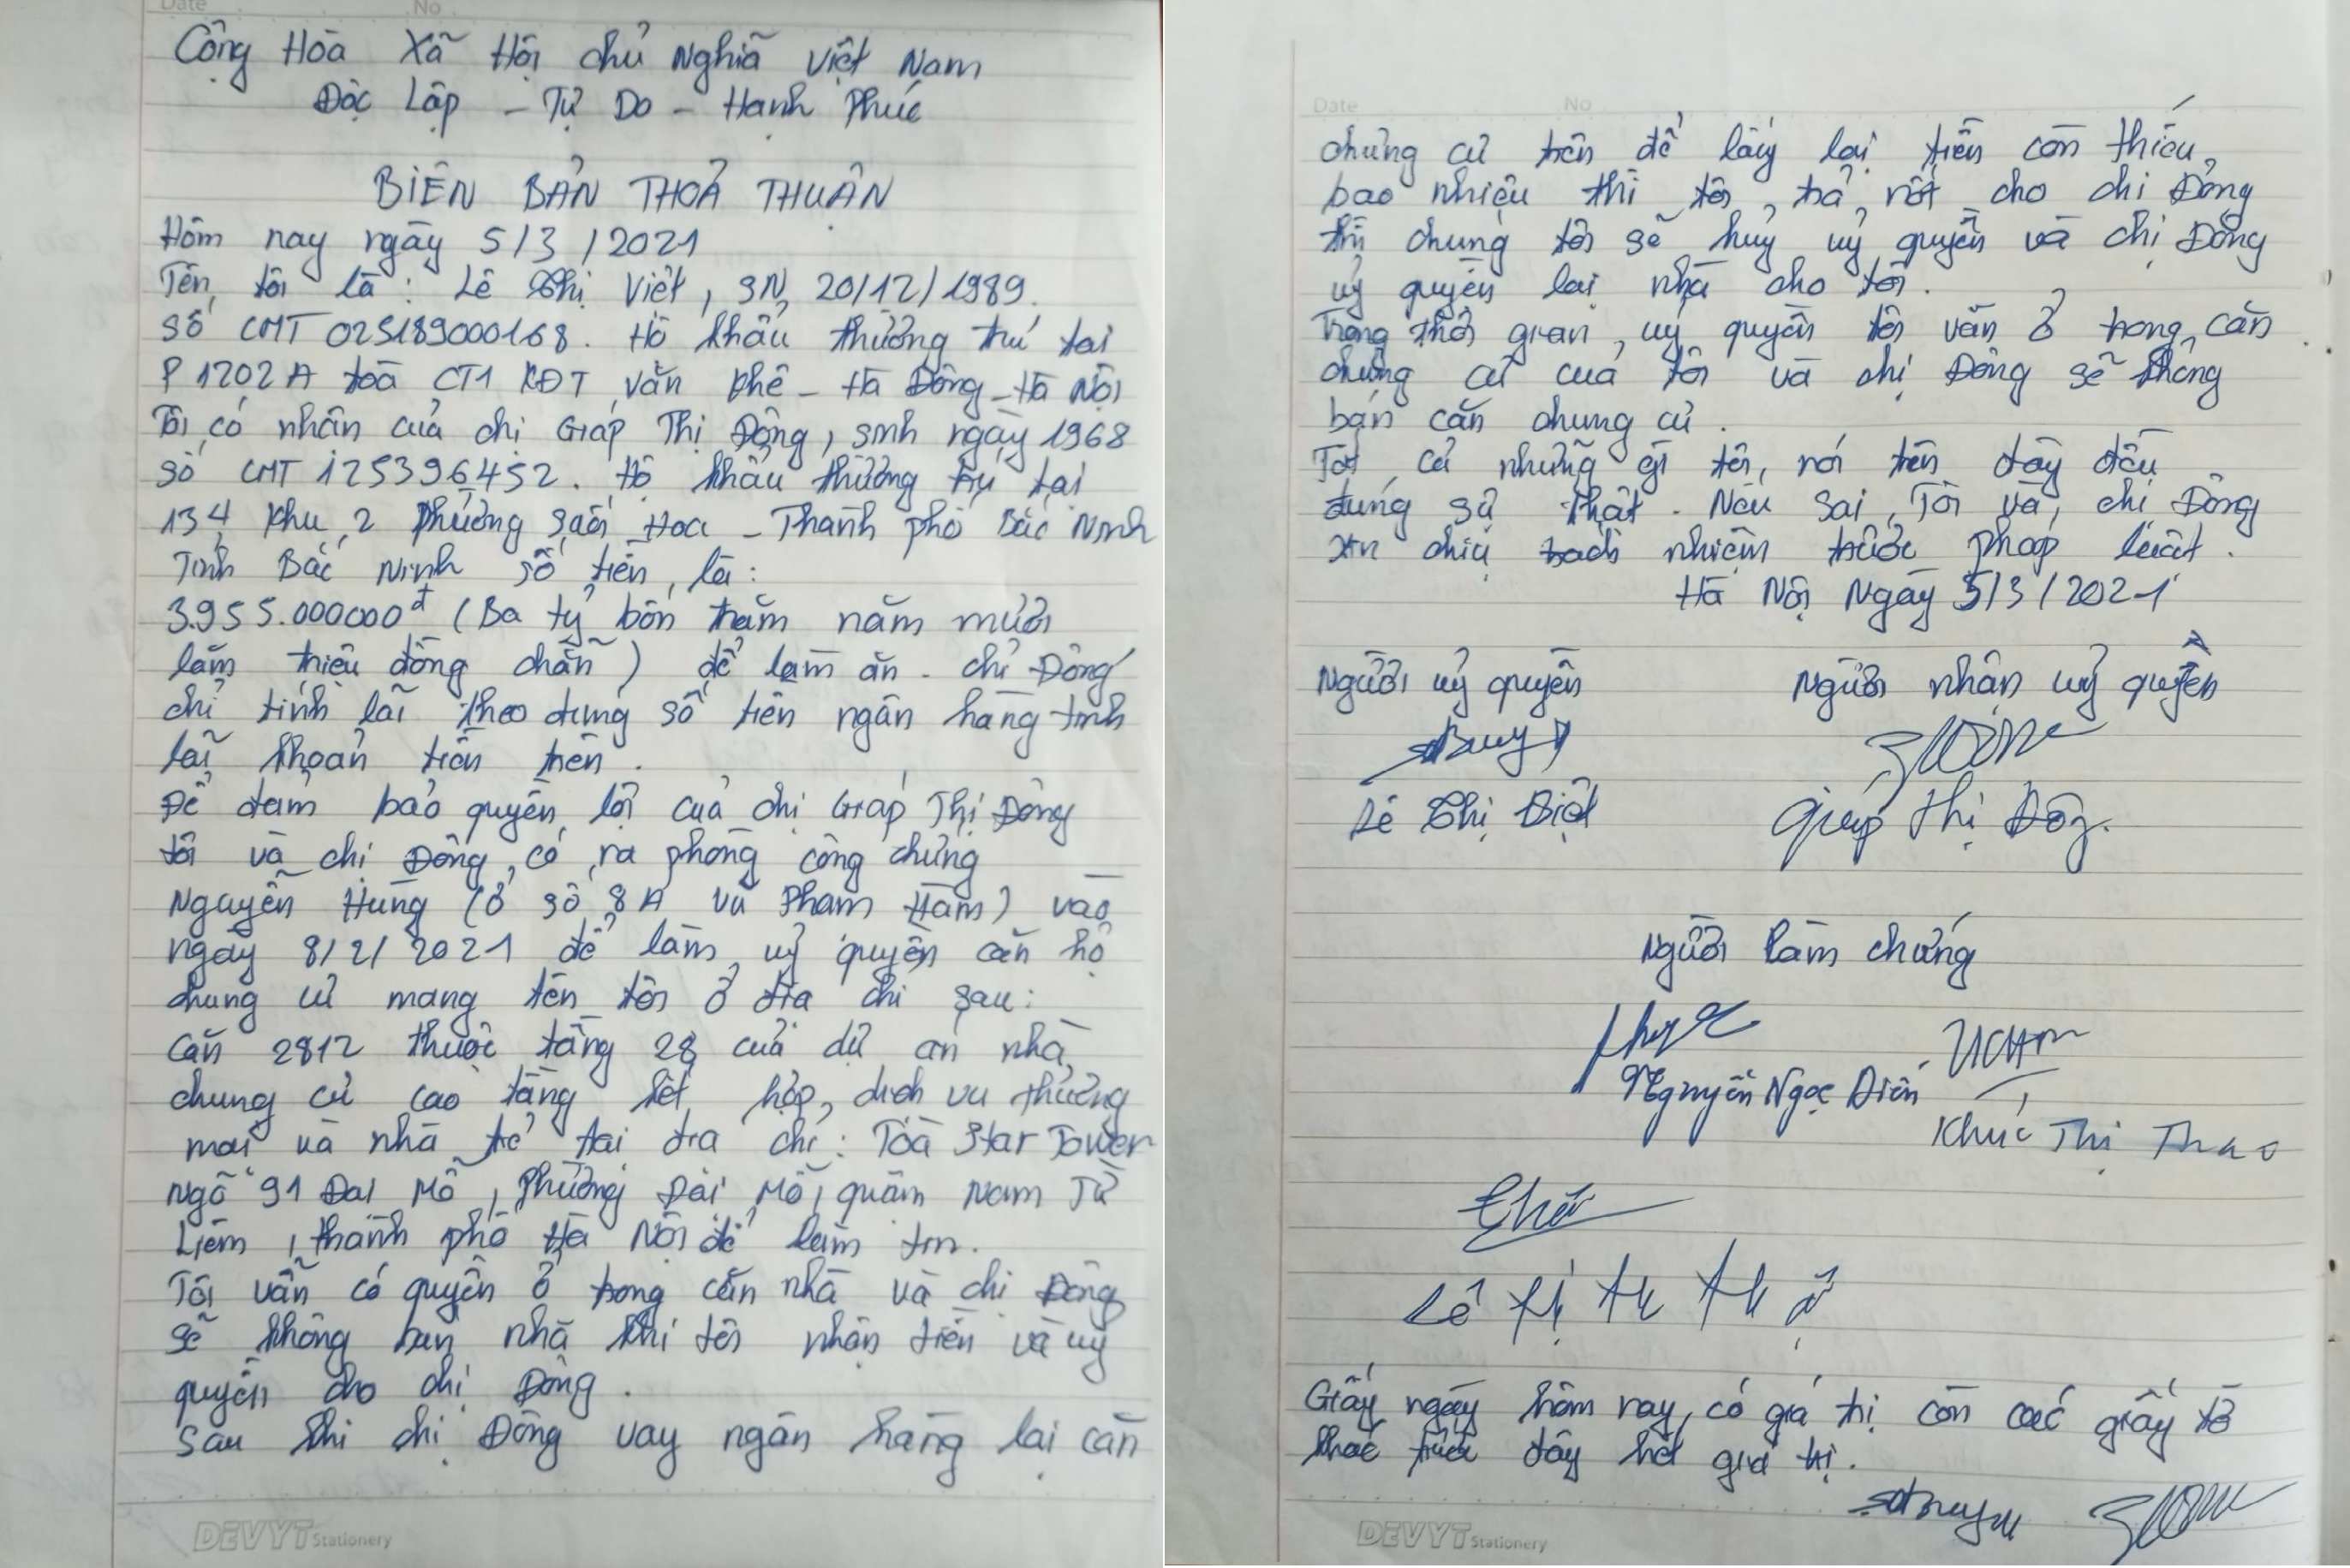 Date No
Cộng Hòa Xã Hội chủ Nghĩa Việt Nam
Độc Lập - Tự Do - Hạnh Phúc
BIÊN BẢN THOẢ THUẬN
Hôm nay ngày 5/3/2021
Tên tôi là: Lê Thị Việt, SN 20/12/1989.
Số CMT 025189000168. Hộ khẩu thường trú tại
P1202A toà CT1 KĐT văn khê - Hà Đông - Hà Nội
Tôi có nhận của chị Giáp Thị Đông, sinh ngày 1968
Số CMT 125396452. Hộ khẩu thường trú tại
134 khu 2 phường suối Hoa - Thành phố Bắc Ninh
Tỉnh Bắc Ninh số tiền là:
3.955.000000đ (Ba tỷ bốn trăm năm mươi
lăm triệu đồng chẵn) để làm ăn. chị Đông
chỉ tính lãi theo đúng số tiền ngân hàng tính
lãi khoản tiền trên.
Để đảm bảo quyền lợi của chị Giáp Thị Đông
tôi và chị Đông có ra phòng công chứng
Nguyễn Hùng (ở số 8A vũ Phạm Hàm) vào
ngày 8/2/2021 để làm uỷ quyền căn hộ
chung cư mang tên tôi ở địa chỉ sau:
Căn 2812 thuộc tầng 28 của dự án nhà
chung cư cao tầng kết hợp, dịch vụ thương
mại và nhà trẻ tại địa chỉ: Toà Star Tower
ngõ 91 Đại Mỗ, phường Đại Mỗ, quận Nam Từ
Liêm, thành phố Hà Nội để làm tin.
Tôi vẫn có quyền ở trong căn nhà và chị Đông
sẽ không bán nhà khi tôi nhận tiền và uỷ
quyền cho chị Đông.
Sau khi chị Đông vay ngân hàng lại căn
DEVYT Stationery
Date No
chung cư trên để lấy lại tiền còn thiếu,
bao nhiêu thì tôi trả nốt cho chị Đông
thì chúng tôi sẽ huỷ uỷ quyền và chị Đông
uỷ quyền lại nhà cho tôi.
Trong thời gian uỷ quyền tôi vẫn ở trong căn
chung cư của tôi và chị Đông sẽ không
bán căn chung cư.
Tất cả những gì tôi nói trên đây đều
đúng sự thật. Nếu sai Tôi và chị Đông
xin chịu trách nhiệm trước pháp luật.
Hà Nội Ngày 5/3/2021
Người uỷ quyền Người nhận uỷ quyền
Lê Thị Việt Giáp Thị Đông.
Người làm chứng
Nguyễn Ngọc Diên
Khúc Thị Thao
Lê Thị
Giấy ngày hôm nay có giá trị còn các giấy tờ
khác trước đây hết giá trị.
DEVYT Stationery